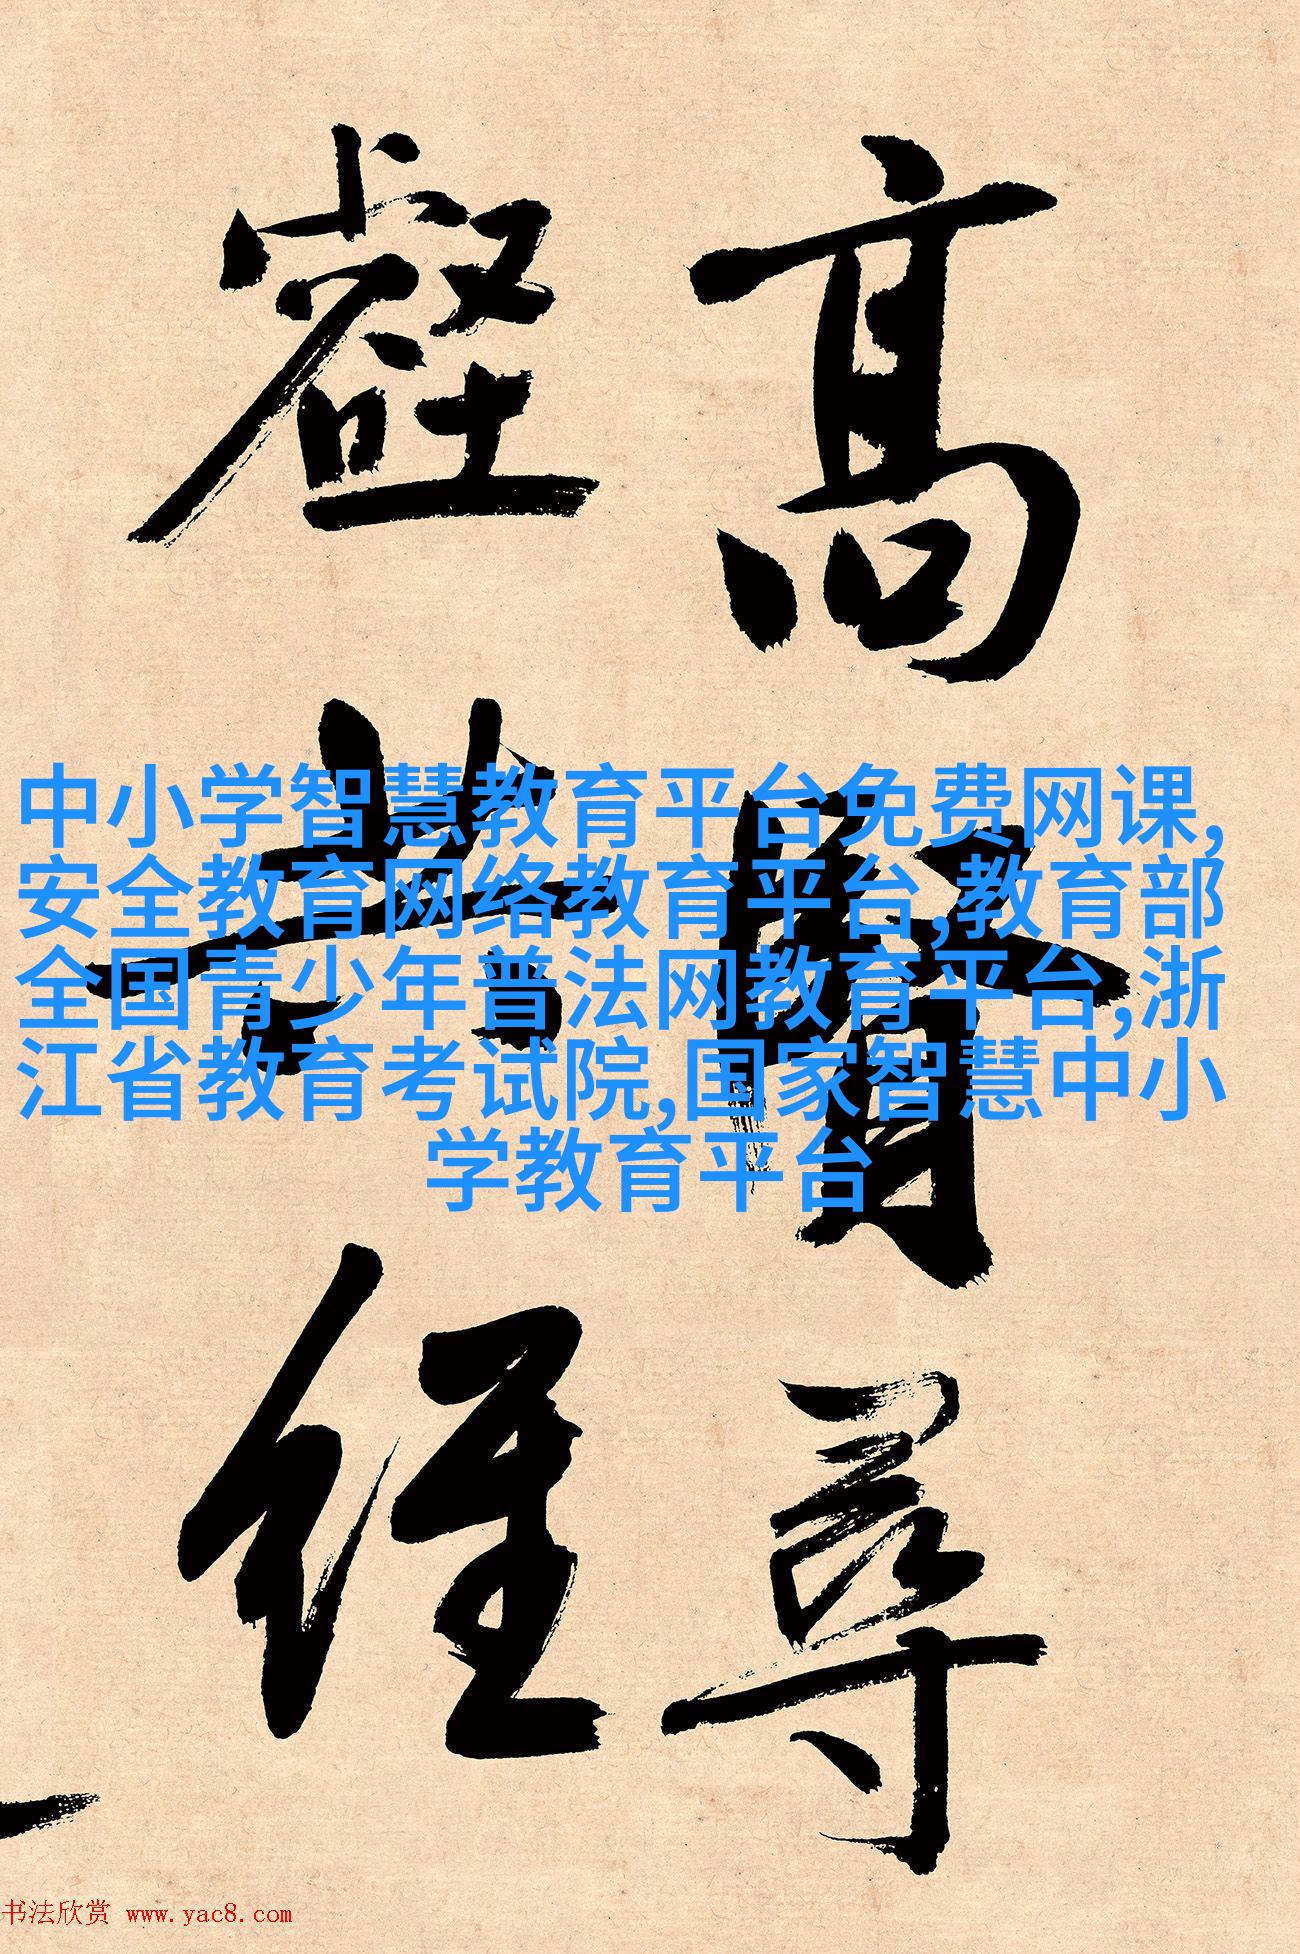 高賢尋
壑共經
中小学智慧教育平台免费网课,
安全教育网络教育平台,教育部
全国青少年普法网教育平台,浙
江省教育考试院,国家智慧中小
学教育平台
书法欣赏 www.yac8.com